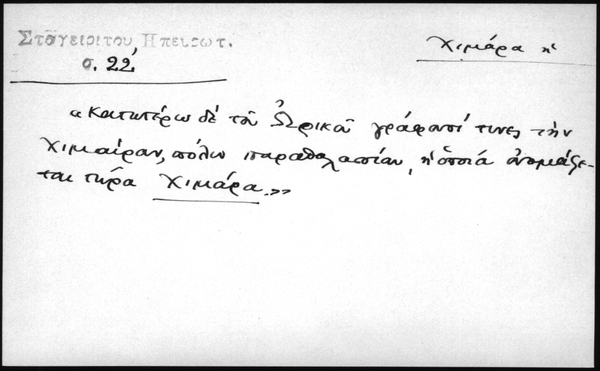 Σταγειρίτου, Ηπειρωτ.
Χιμάρα ἡ
σ. 22,
«Κατωτέρω δὲ τοῦ Ὠρικοῦ γράφουσί τινες τὴν
Χιμαίραν, πόλιν παραθαλασσίαν, ἡ ὁποία ὀνομάζε-
ται τώρα Χιμάρα.»